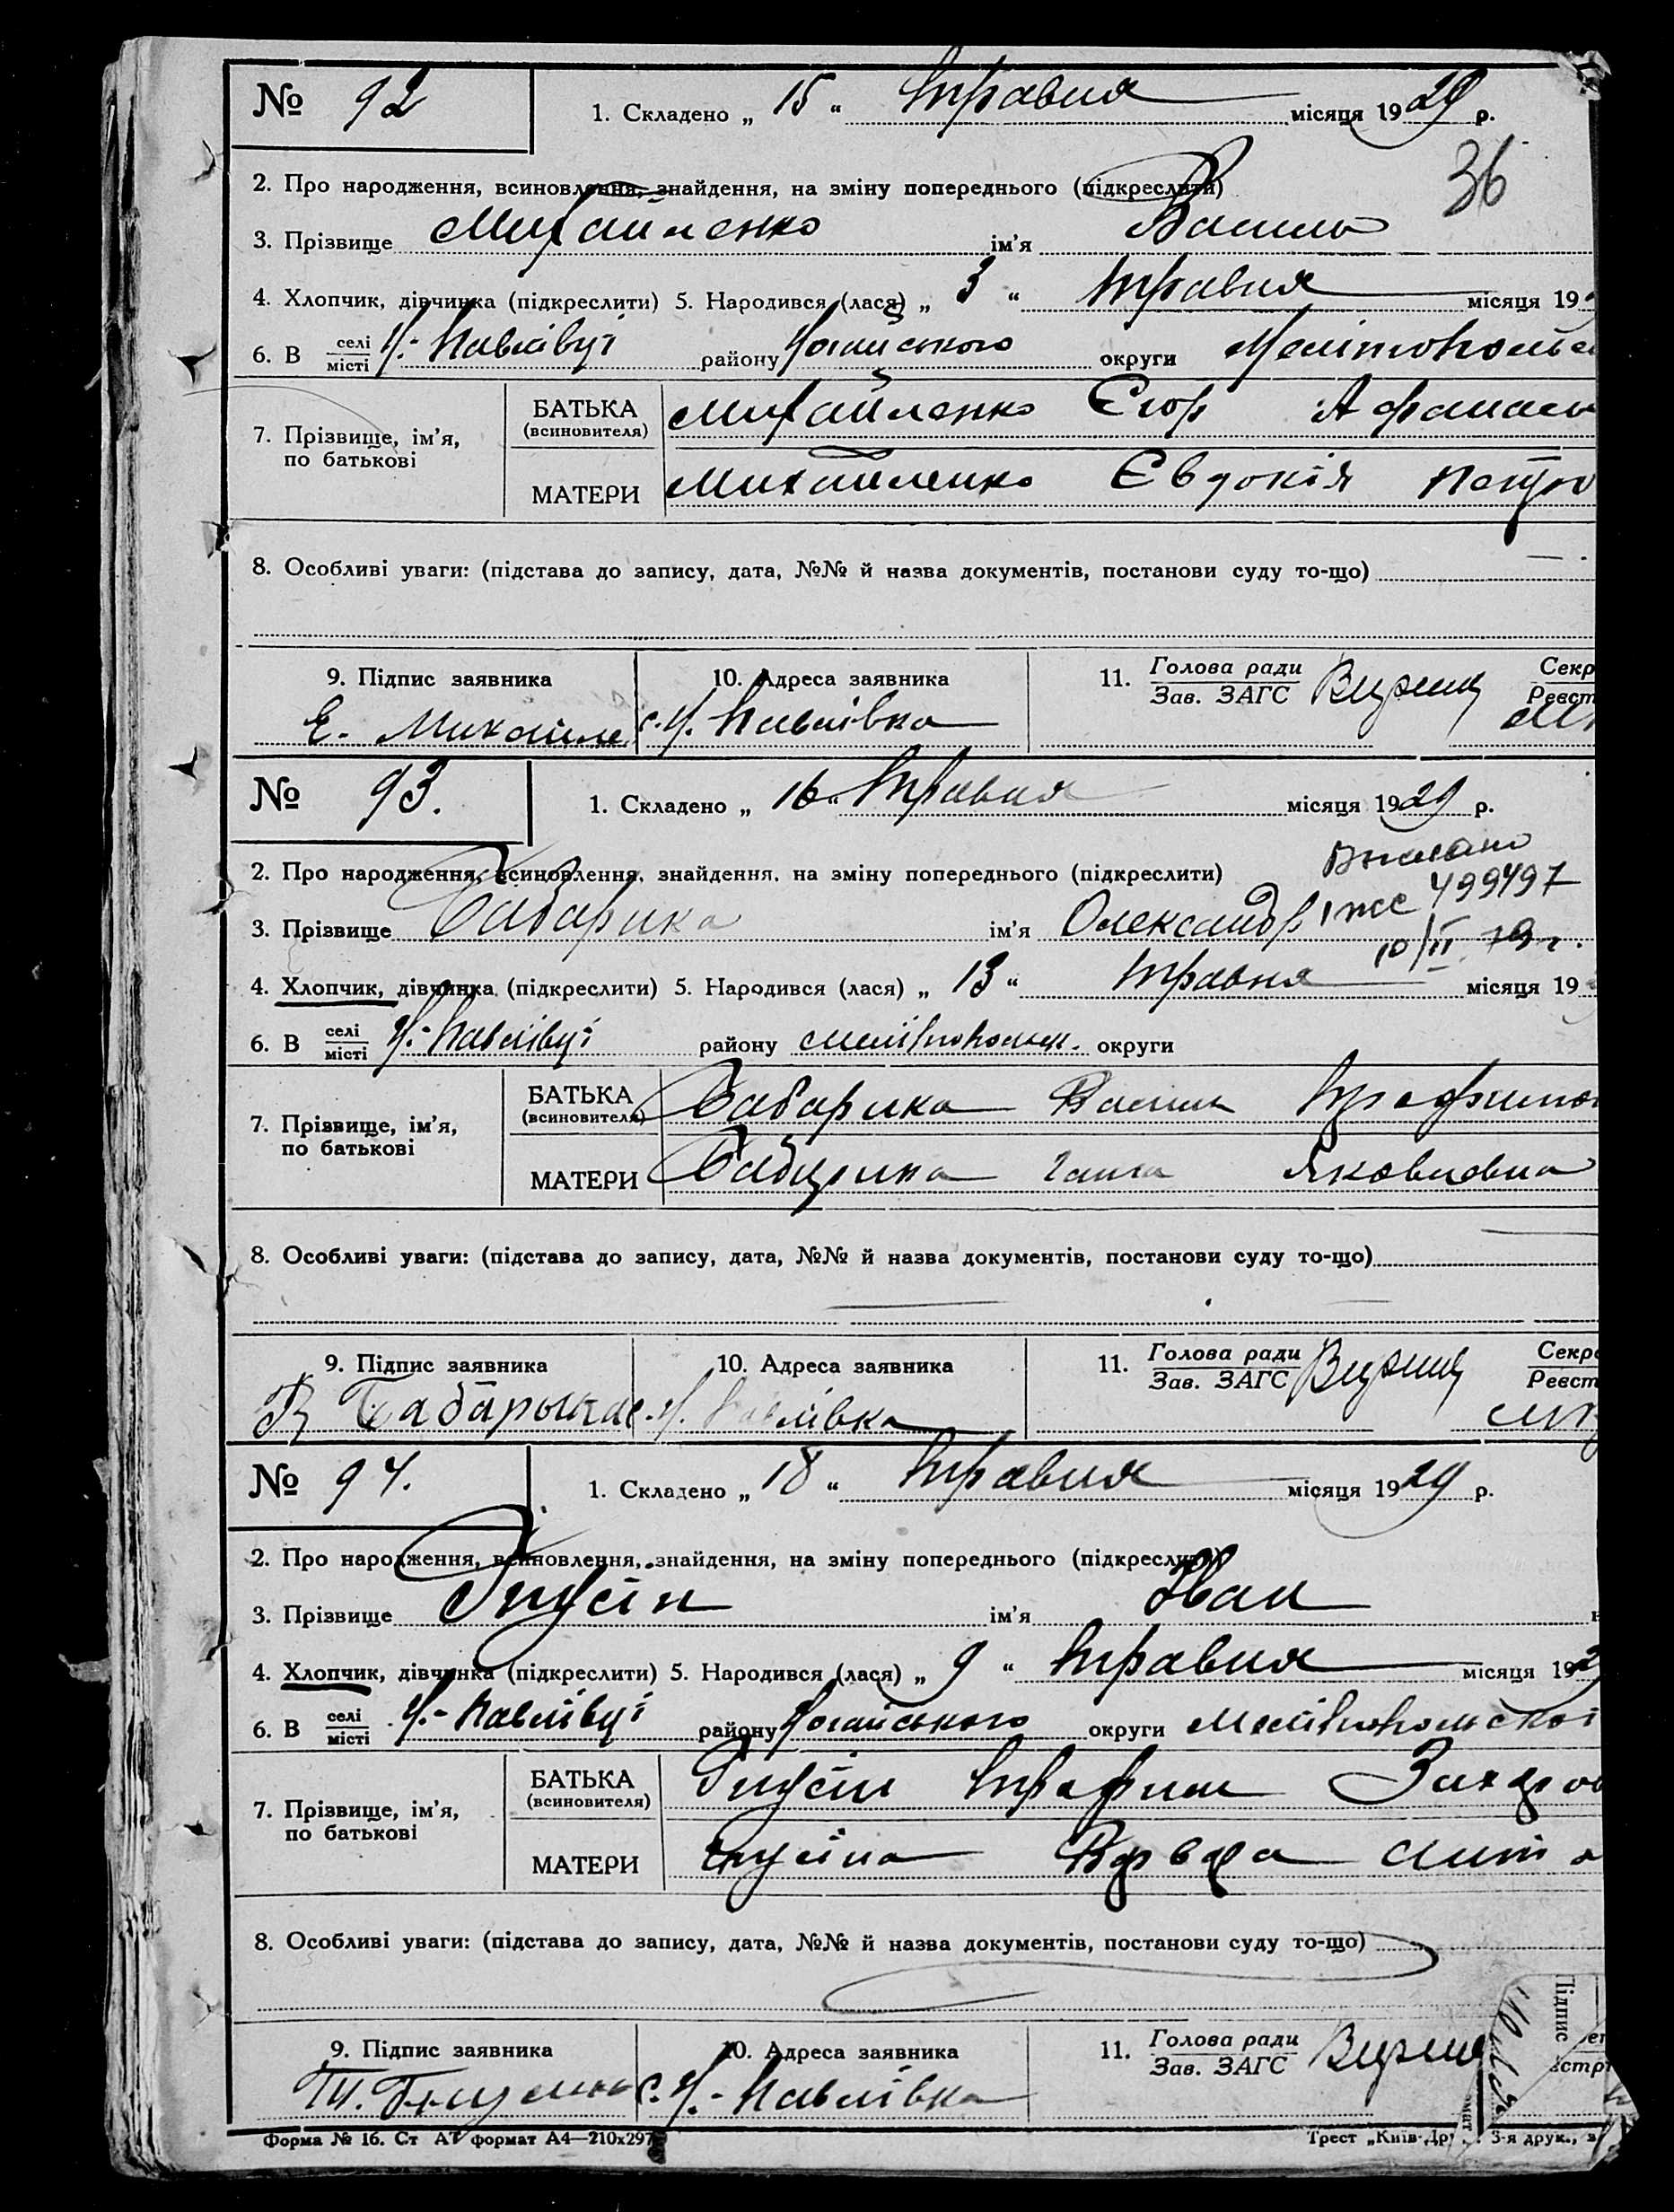 № 92 1. Складено „ 15 “ травня місяця 1929 р.
36
2. Про народження, всиновлення, знайдення, на зміну попереднього (підкреслити)
3. Прізвище Михайленко ім'я Василь
4. Хлопчик, дівчинка (підкреслити) 5. Народився (лася) „ 3 “ травня місяця 19
6. В селі/місті Н.-Павлівці району Ногайського округи Мелітопольс
7. Прізвище, ім'я, по батькові
БАТЬКА (всиновителя) Михайленко Єгор Афанась
МАТЕРИ Михайленко Євдокія Петро
8. Особливі уваги: (підстава до запису, дата, №№ й назва документів, постанови суду то-що)
9. Підпис заявника 10. Адреса заявника 11. Голова ради/Зав. ЗАГС Секр
Реєст
Е. Михайле с. Н. Павлівка
№ 93. 1. Складено „ 16 “ травня місяця 1929 р.
2. Про народження, всиновлення, знайдення, на зміну попереднього (підкреслити)
499497
3. Прізвище Бабарика ім'я Олександр
10/II 79 г.
4. Хлопчик, дівчинка (підкреслити) 5. Народився (лася) „ 13 “ травня місяця 19
6. В селі/місті Н.-Павлівці району Мелітопольськ. округи
7. Прізвище, ім'я, по батькові
БАТЬКА (всиновителя) Бабарика Василь Трофимов
МАТЕРИ Бабарика Ганна Яковлевна
8. Особливі уваги: (підстава до запису, дата, №№ й назва документів, постанови суду то-що)
9. Підпис заявника 10. Адреса заявника 11. Голова ради/Зав. ЗАГС Секре
Реєст
В Бабарыка с. Н. Павлівка
№ 94. 1. Складено „ 18 “ травня місяця 1929 р.
2. Про народження, всиновлення, знайдення, на зміну попереднього (підкреслити)
3. Прізвище Гнусін ім'я Іван
4. Хлопчик, дівчинка (підкреслити) 5. Народився (лася) „ 9 “ травня місяця 192
6. В селі/місті Н.-Павлівці району Ногайського округи Мелітопольської
7. Прізвище, ім'я, по батькові
БАТЬКА (всиновителя) Гнусін Трофим Захаров
МАТЕРИ Гнусіна Варвара
8. Особливі уваги: (підстава до запису, дата, №№ й назва документів, постанови суду то-що)
Підпис
9. Підпис заявника 10. Адреса заявника 11. Голова ради/Зав. ЗАГС
с. Н.-Павлівка
Форма № 16. Ст АТ формат А4—210х297 Трест „Київ-Др 3-я друк., з